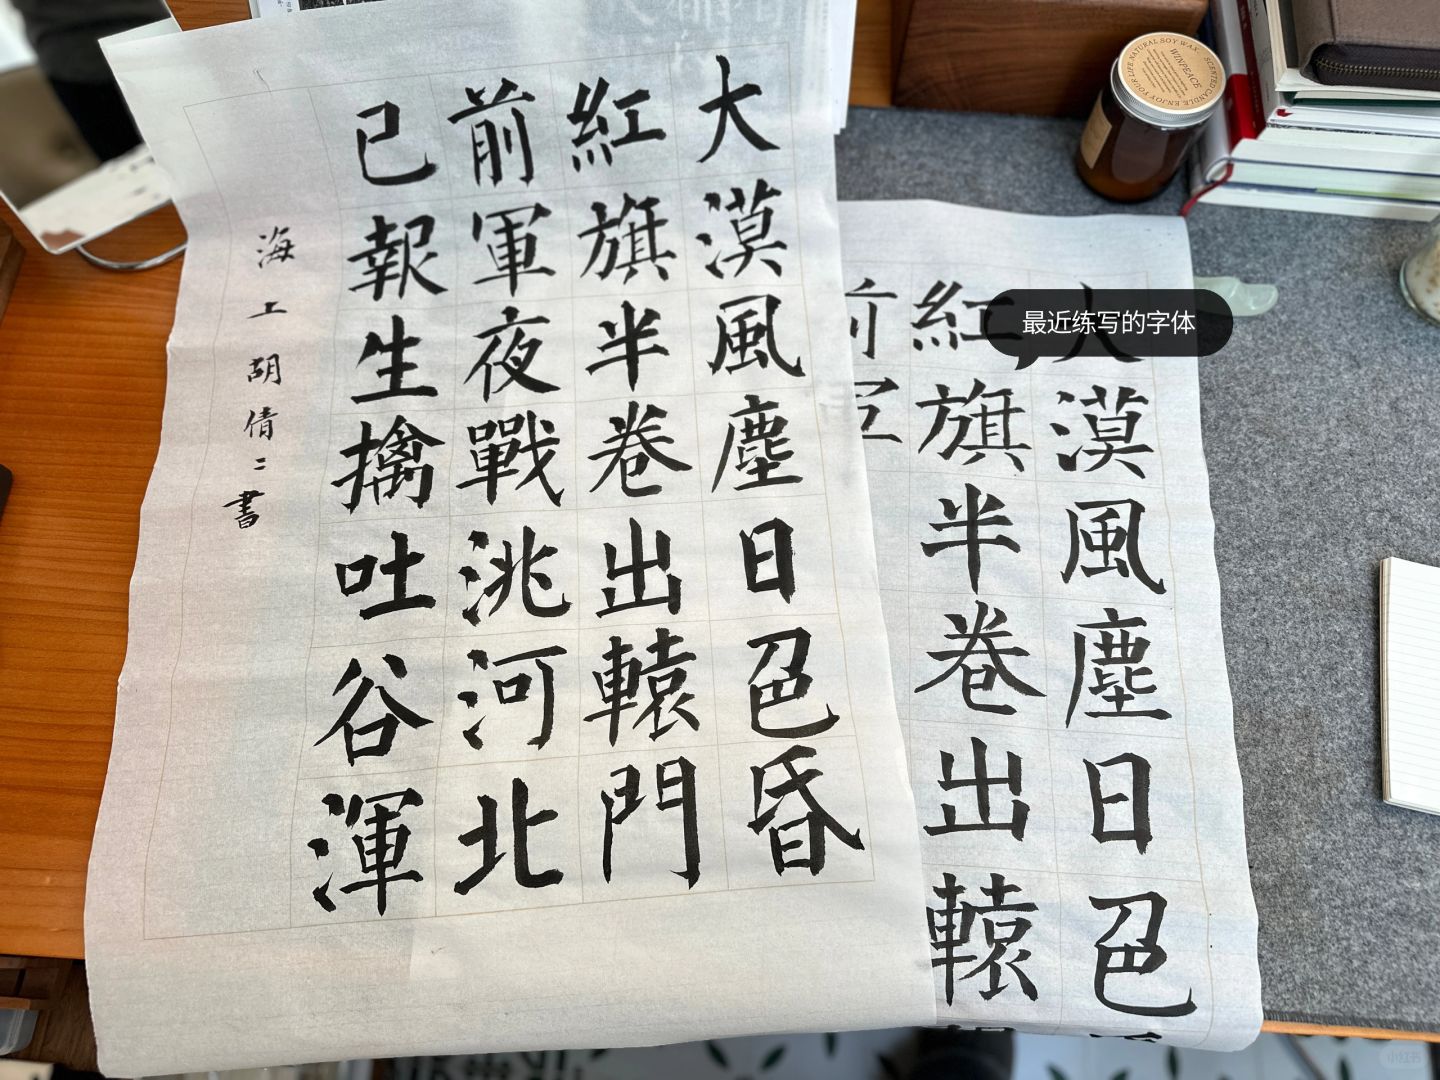 大漠風塵日色昏
紅旗半卷出轅門
前軍夜戰洮河北
已報生擒吐谷渾
海上胡倩二書
大漠風塵日色
紅旗半卷出轅
前軍
最近练写的字体
WINPEACE
NATURAL SOY WAX
SCENTED CANDLE
ENJOY YOUR LIFE
小红书